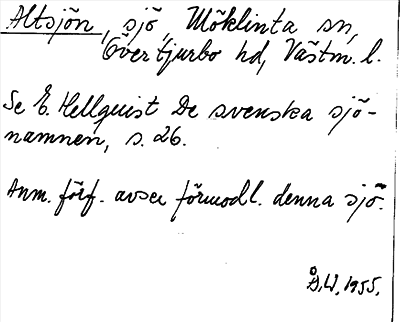 Altsjön, sjö, Möklinta sn,
Övertjurbo hd, Västm. l.
Se E. Hellquist De svenska sjö-
namnen, s. 26.
Anm. förf. avser förmodl. denna sjö.
Å.W. 1955.